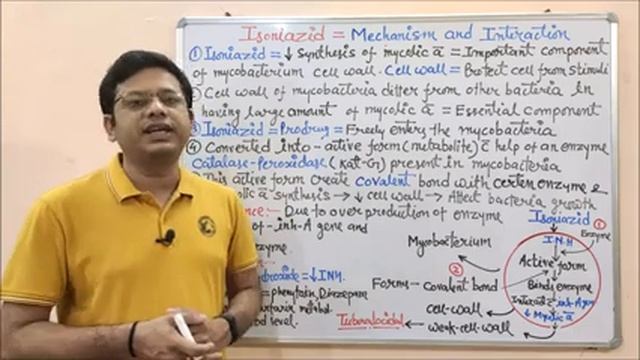 Isoniazid = Mechanism and Interaction
① Isoniazid = ↓ Synthesis of mycolic a = Important component
of mycobacterium cell wall. Cell wall = Protect cell from stimuli
Cell wall of mycobacteria differ from other bacteria in
having large amount of mycolic a = Essential component
③ Isoniazid = Prodrug = Freely enters the mycobacteria
④ Converted into - active form (metabolite) c help of an enzyme
Catalase-Peroxidase (Kat-G1) present in mycobacteria
This active form create covalent bond with certen enzyme &
synthesis → ↓ cell wall → Affect bacteria growth
Due to over production of enzyme
of - inh-A gene and
enzyme.
= ↓ INH.
= phenytoin, Diazepam
level.
Isoniazid ①
Enzyme
I.N.H
Mycobacterium
Active form
②
Form - Covalent bond
Binds enzyme
Interact c inh-A gene
↓ Mycolic a
cell-wall
weak-cell-wall
Tuberculocidal